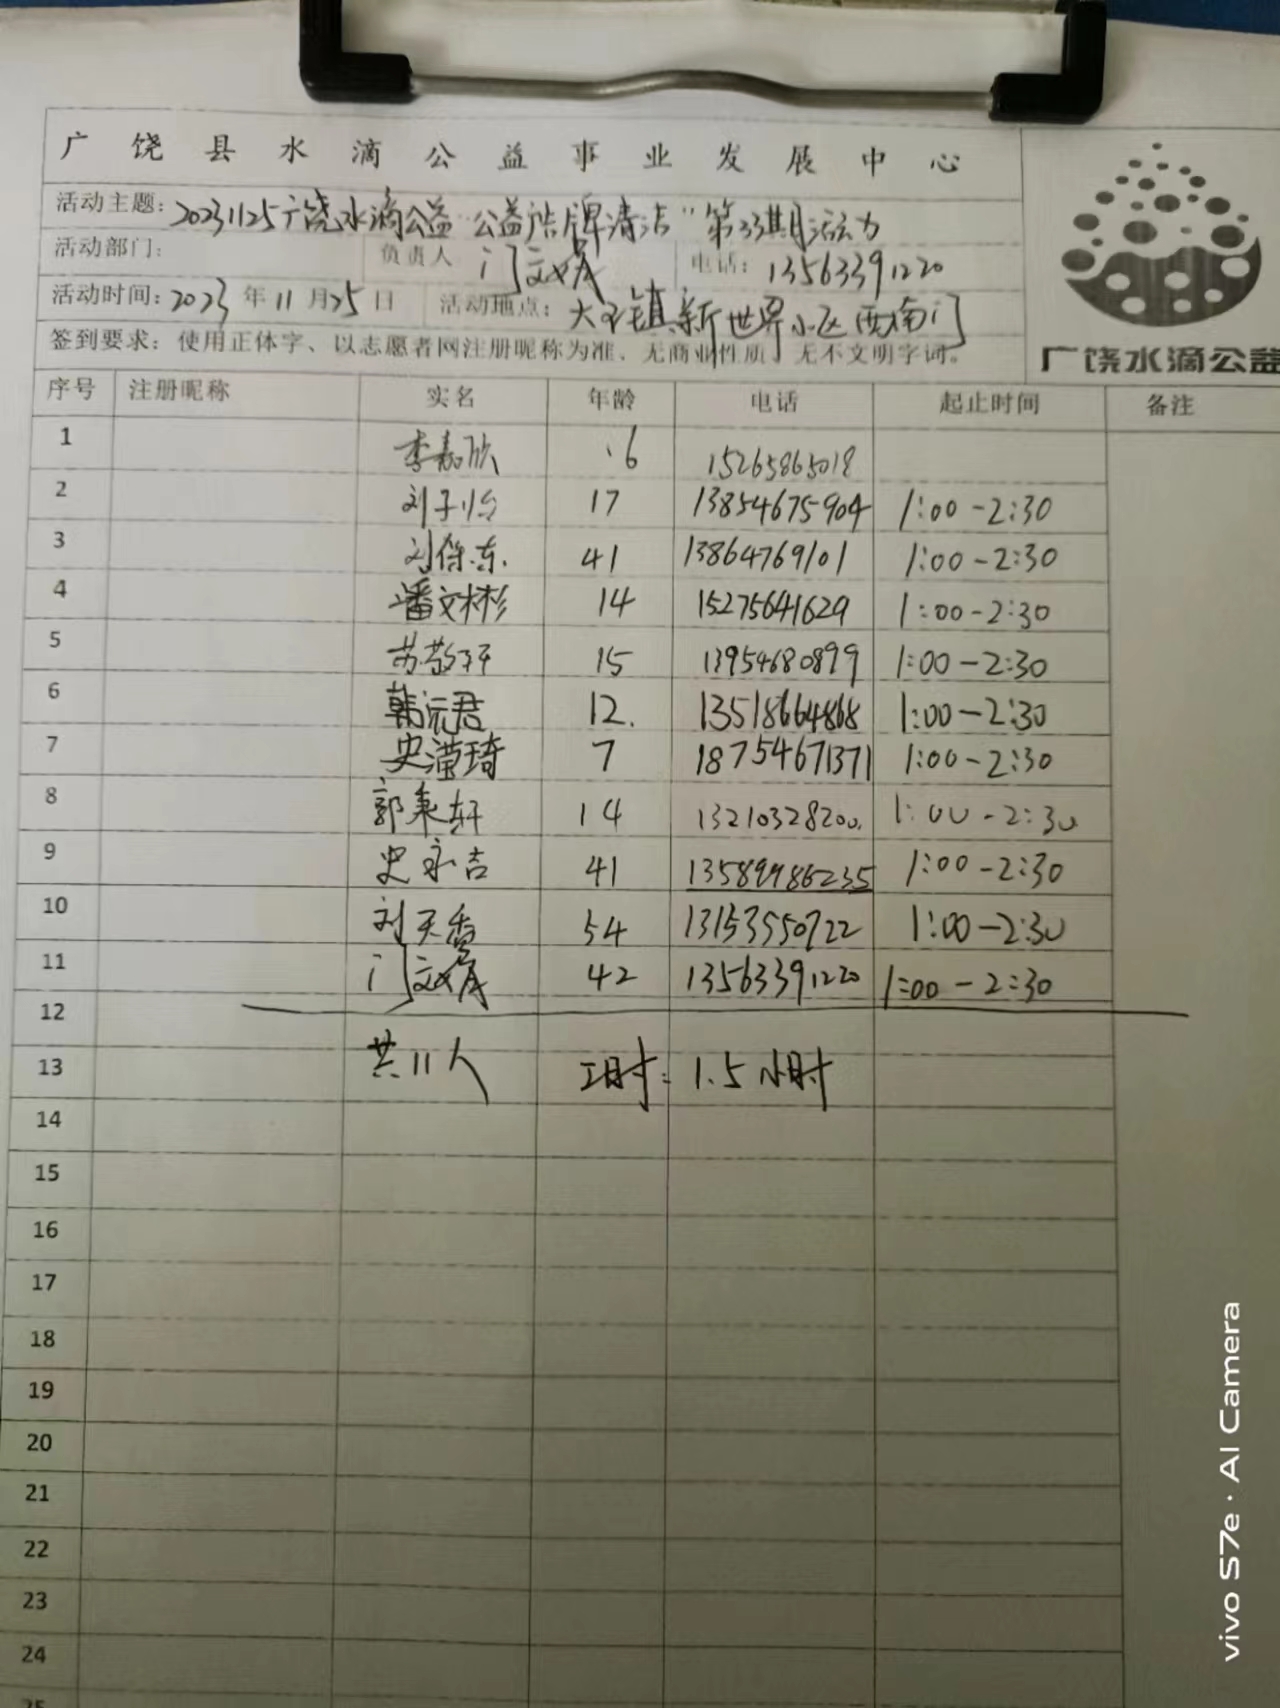 广饶县水滴公益事业发展中心
活动主题：20231125广饶水滴公益“公益广告牌清洁”第33期活动
活动部门： 负责人 门文成 电话：13563391220
活动时间：2023年11月25日 活动地点：大王镇新世界小区西南门
签到要求：使用正体字、以志愿者网注册昵称为准、无商业性质、无不文明字词。
广饶水滴公益
序号 注册昵称 实名 年龄 电话 起止时间 备注
1 李嘉欣 16 15265865018
2 刘子怡 17 13854675904 1:00-2:30
3 刘保东 41 13864769101 1:00-2:30
4 潘文彬 14 15275641629 1:00-2:30
5 苏 15 13954680899 1:00-2:30
6 韩沅君 12. 13518664868 1:00-2:30
7 史 琦 7 18754671371 1:00-2:30
8 郭秉轩 14 13210328200. 1:00-2:30
9 史永吉 41 13589986235 1:00-2:30
10 刘天香 54 13153550722 1:00-2:30
11 门文成 42 13563391220 1:00-2:30
12
共11人 工时：1.5小时
13
14
15
16
17
18
19
20
21
22
23
24
25
vivo S7e · AI Camera